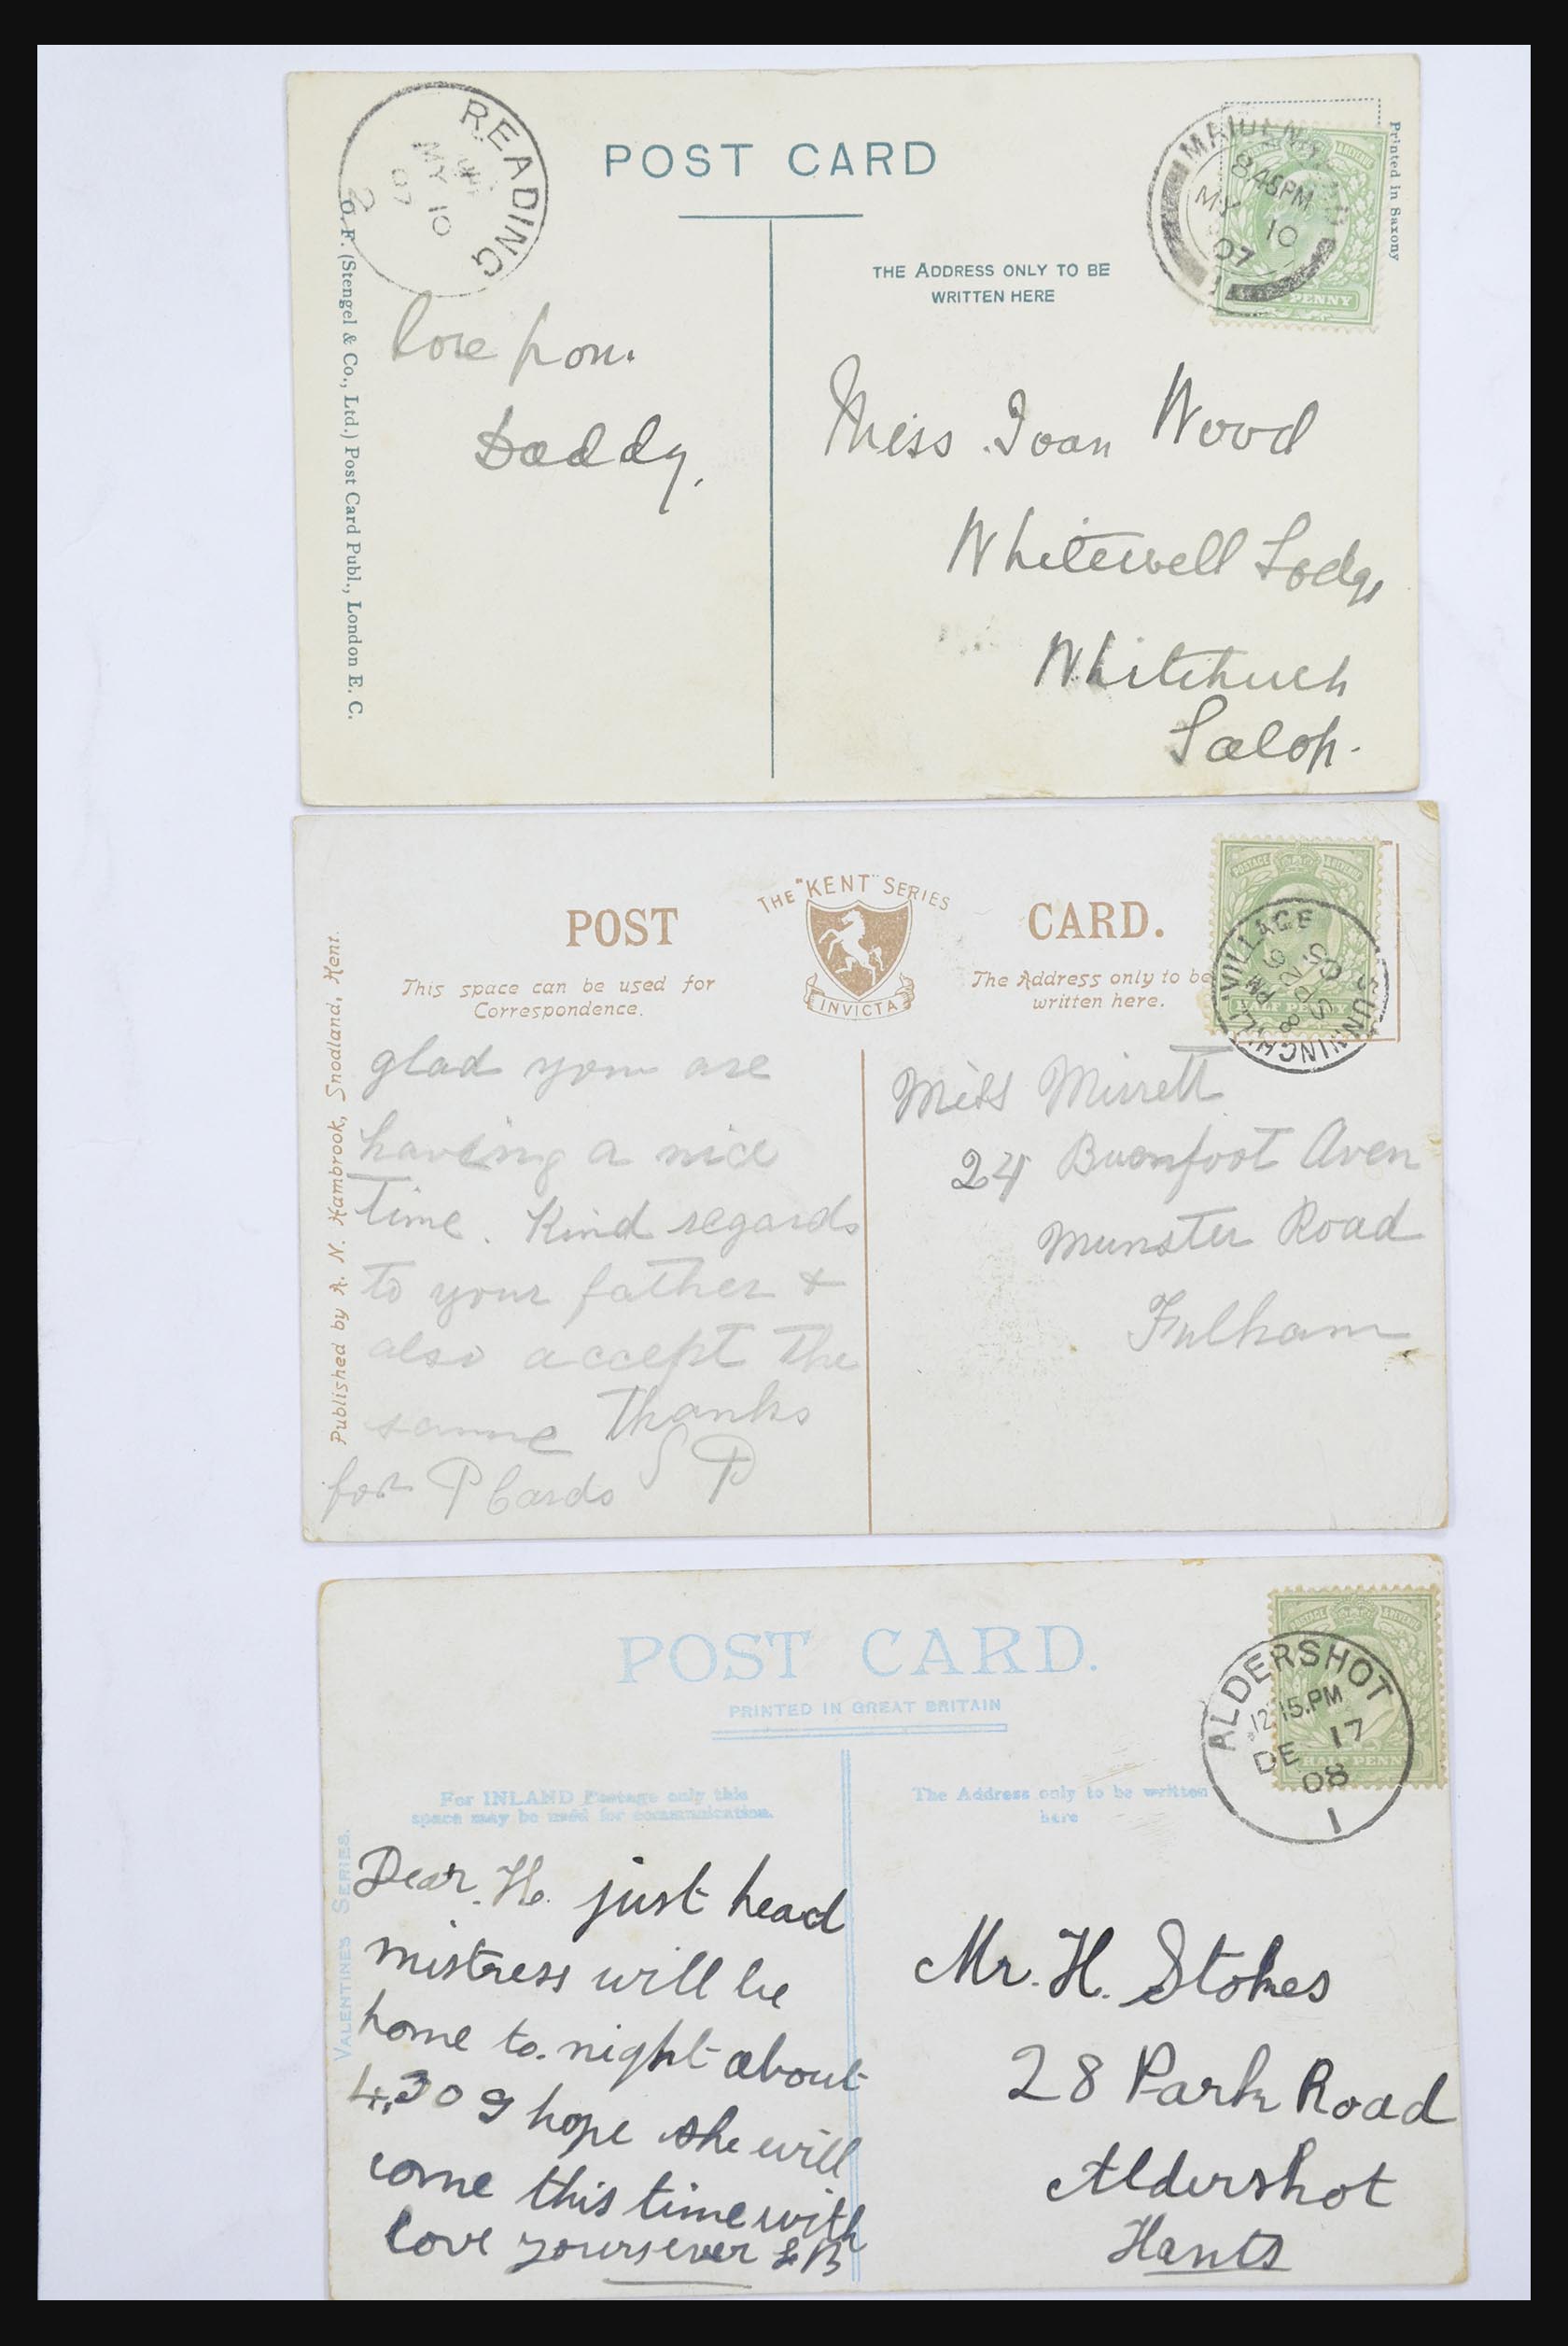 READING
MY 10
07
2
POST CARD
MAIDENHEAD
8.45PM
MY 10
07
1
PENNY
Printed in Saxony
THE ADDRESS ONLY TO BE
WRITTEN HERE
O. F. (Stengel & Co., Ltd.) Post Card Publ., London E. C.
love from
Daddy,
Miss Joan Wood
Whitewell Lodge
Whitchurch
Salop.
THE "KENT" SERIES
POST CARD.
INVICTA
This space can be used for
Correspondence.
The Address only to be
written here.
POSTAGE REVENUE
SUNNINGHILL VILLAGE
8 PM
SP 29
05
Published by A. N. Hambrook, Snodland, Kent.
glad you are
having a nice
time. Kind regards
to your father &
also accept the
same Thanks
for P Cards S P
Miss Mirrett
24 Burnfoot Aven
Munster Road
Fulham
POST CARD.
PRINTED IN GREAT BRITAIN
POSTAGE REVENUE
ALDERSHOT
12.15.PM
DE 17
08
1
HALF PENNY
For INLAND Postage only this
space may be used for communication.
The Address only to be written
here
VALENTINES SERIES.
Dear H. just head
mistress will be
home to-night about
4,30 I hope she will
come this time with
love yours ever
Mr. H. Stokes
28 Park Road
Aldershot
Hants